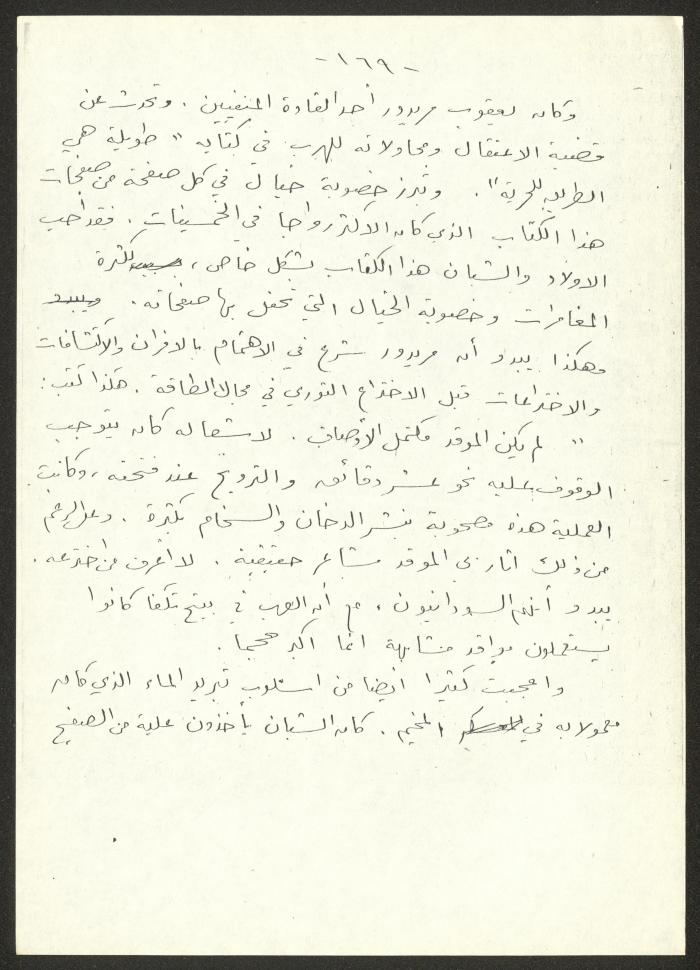 -١٦٩-
وكان يعقوب مريدور أحد القادة المنفيين . وتحدث عن
قضية الاعتقال ومحاولاته للهرب في كتابه " طويلة هي
الطريق للحرية" . وتبرز خصوبة خيال في كل صفحة من صفحات
هذا الكتاب الذي كان الاكثر رواجا في الخمسينات . فقد أحب
الاولاد والشبان هذا الكتاب بشكل خاص ، بسبب لكثرة
المغامرات وخصوبة الخيال التي تحفل بها صفحاته . ويبدو
وهكذا يبدو أن مريدور شرع في الاهتمام بالافران والاكتشافات
والاختراعات قبل الاختراع الثوري في مجال الطاقة . هكذا كتب :
" لم يكن الموقد مكتمل الأوصاف . لاشعاله كان يتوجب
الوقوف عليه نحو عشر دقائق والترويح عند فتحته ، وكانت
العملية هذه مصحوبة بنشر الدخان والسخام بكثرة . وعلى الرغم
من ذلك اثار بي الموقد مشاعر حقيقية . لا أعرف من اخترعه .
يبدو أنهم السودانيون ، مع أن العرب في بيتح تكفا كانوا
يستعملون مواقد مشابهة انما اكبر حجما .
واعجبت كثيرا أيضا من اسلوب تبريد الماء الذي كان
معمولا به في المعسكر المخيم . كان الشبان يأخذون علبة من الصفيح